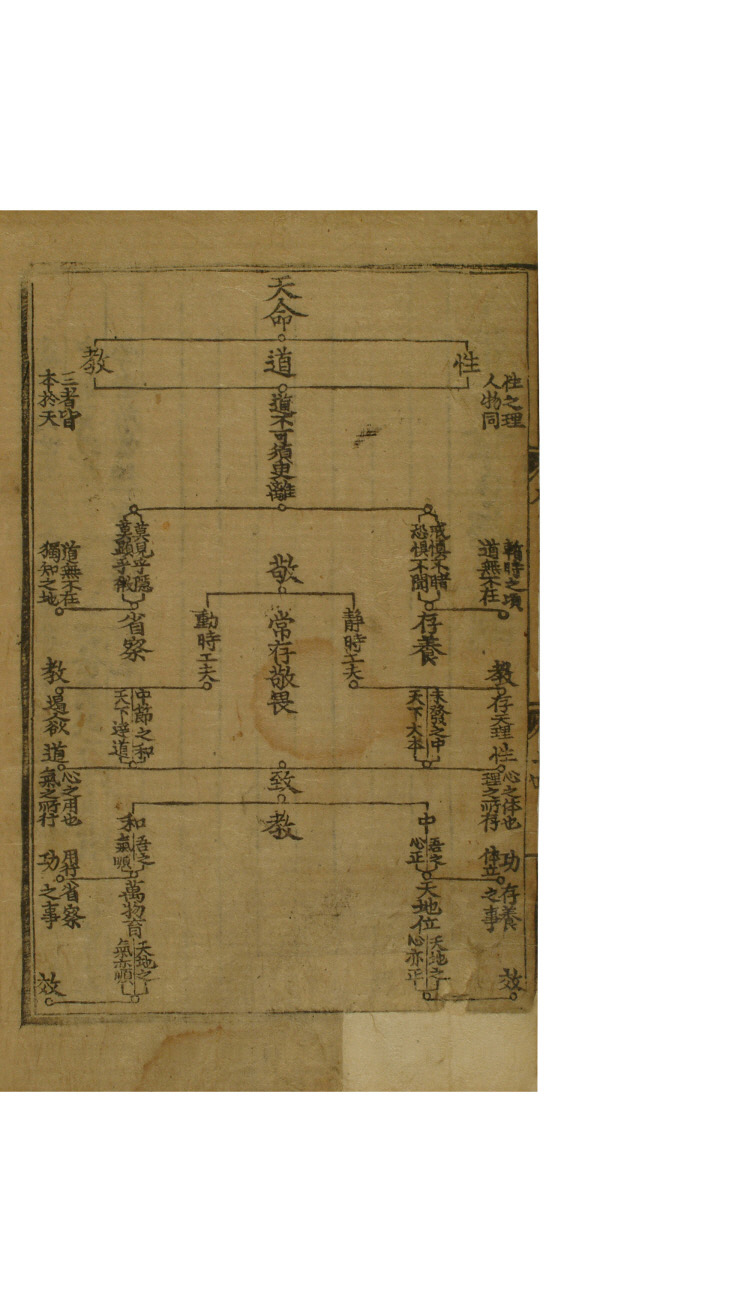 天命
性
道
教
性之理
人物同
三者皆
本於天
道不可須臾離
戒慎不睹
恐惧不聞
莫見乎隱
莫顯乎微
暫時之頃
道無不在
道無不在
獨知之地
敬
存養
省察
靜時工夫
常存敬畏
動時工夫
教
存天理
教
遏欲
未發之中
天下大本
中節之和
天下達道
性
心之体也
理之所存
道
心之用也
氣之所行
致
教
中
吾之
心正
和
吾之
氣順
功
体立
存養
之事
功
用行
省察
之事
天地位
天地之
心亦正
萬物育
天地之
氣亦順
效
效